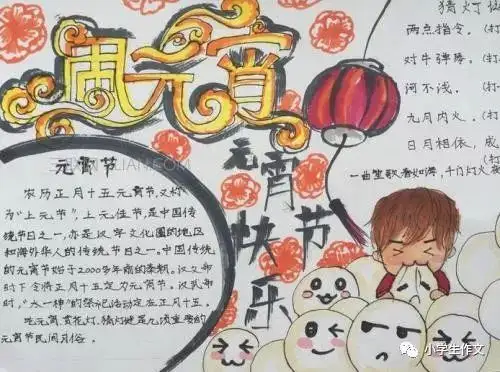 闹元宵
元宵节
农历正月十五元宵节,又称
为"上元节",上元佳节,是中国传
统节日之一,亦是汉字文化圈的地区
和海外华人的传统节日之一。中国传统
的元宵节始于2000多年前的秦朝。汉文帝
时下令将正月十五定为元宵节。汉武帝
时,"太一神"的祭祀活动定在正月十五。
吃元宵、赏花灯、猜灯谜是几项重要的
元宵节民间习俗。
元宵节
快乐
猜灯
两点指令。(打
对牛弹琴。(打
河不浅。(打
九月内火。(打
日月相依,成
一曲笙歌春如海,千门灯火夜
小学生作文